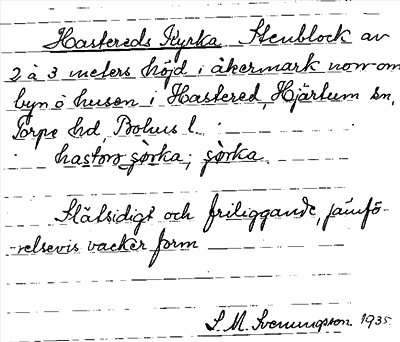 Hastereds Kyrka Stenblock av
2 à 3 meters höjd i åkermark norr om
byn o husen i Hastered, Hjärtum sn,
Torpe hd, Bohus l.
hastorö ɟörka; ɟörka
Slätsidigt och friliggande, jämfö-
relsevis vacker form
S. M. Svenungsson 1935